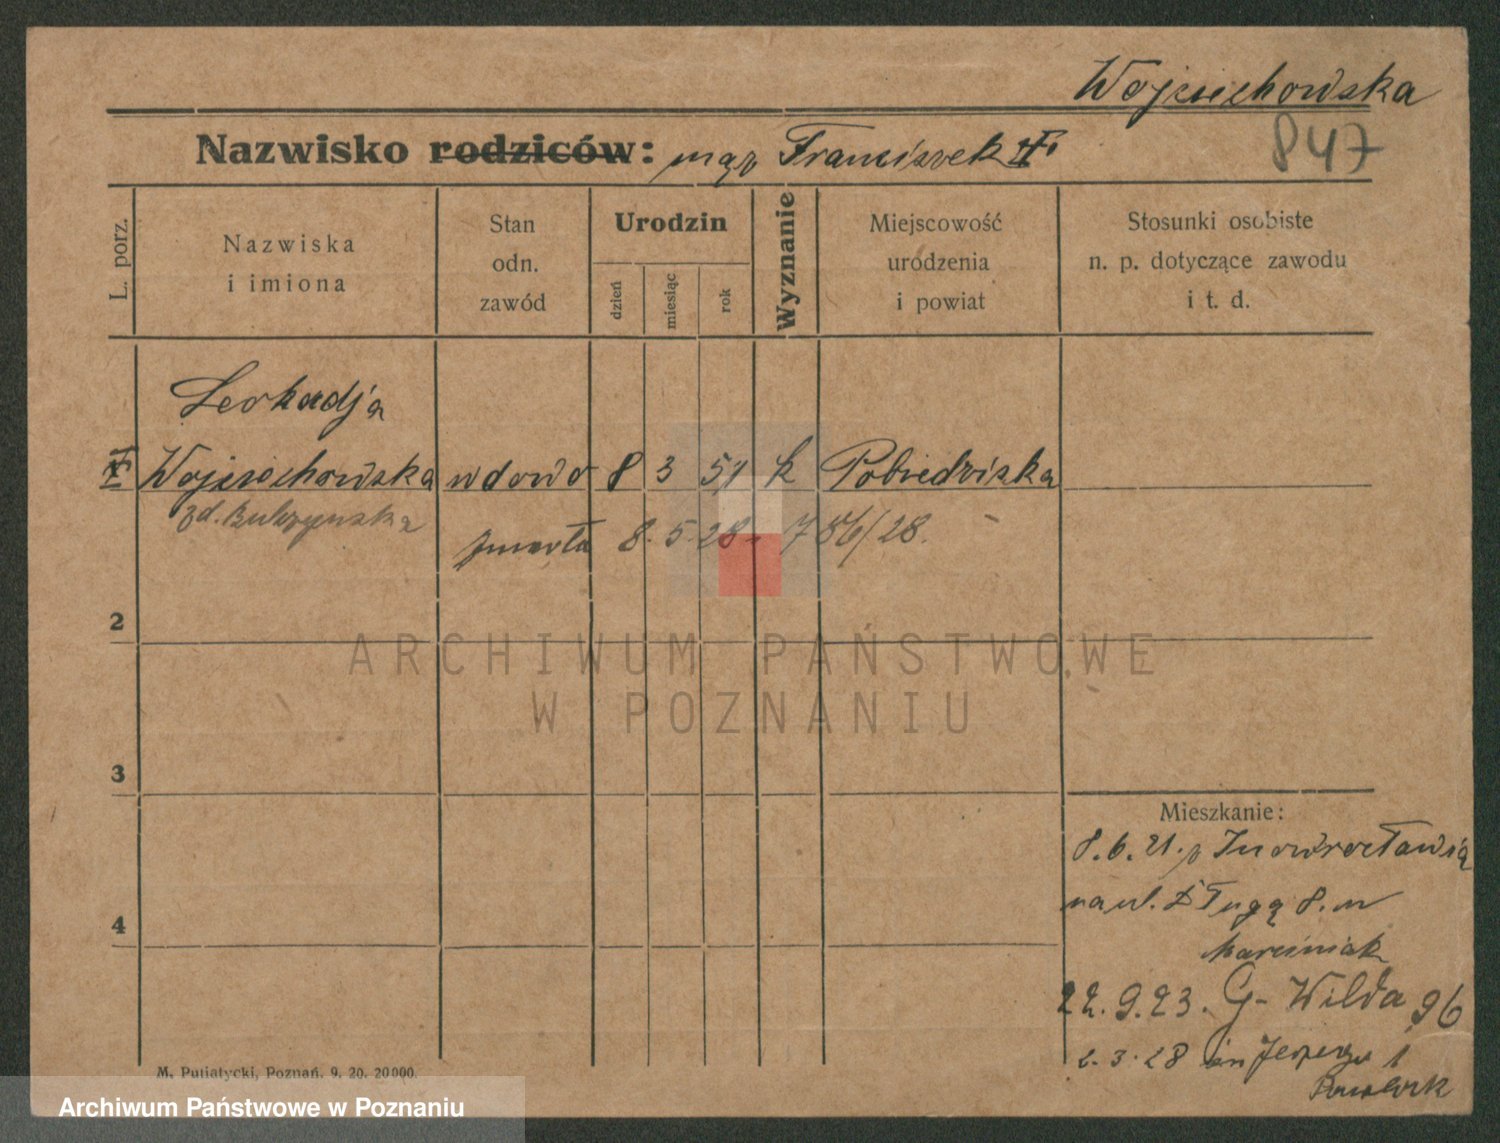 Wojciechowska
847
Nazwisko rodziców: mąż Franciszek
L. porz.
Nazwiska i imiona
Stan odn. zawód
Urodzin
dzień
miesiąc
rok
Wyznanie
Miejscowość urodzenia i powiat
Stosunki osobiste n. p. dotyczące zawodu i t. d.
Leokadja
Wojciechowska wdowa 8 3 51 k Pobiedziska
zmarła 8. 5. 28. 786/28.
2
ARCHIWUM PAŃSTWOWE
W POZNANIU
3
Mieszkanie:
8. 6. 21. z Inowrocławia
4
na ul. Długą 8. m
Marciniak
22. 9. 23. G- Wilda 96
2. 3. 28
M. Putiatycki, Poznań. 9. 20. 20000.
Archiwum Państwowe w Poznaniu